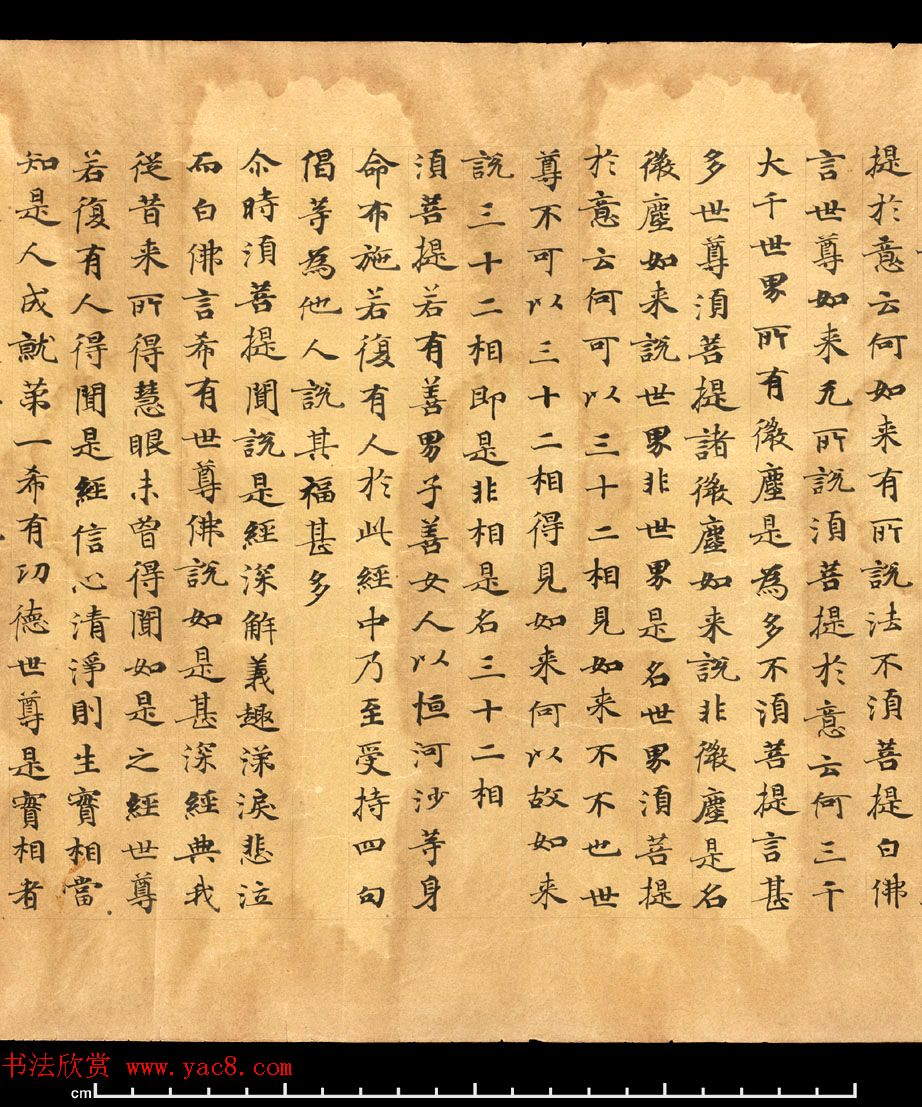 提於意云何如来有所說法不須菩提白佛
言世尊如来无所說須菩提於意云何三千
大千世界所有微塵是為多不須菩提言甚
多世尊須菩提諸微塵如来說非微塵是名
微塵如来說世界非世界是名世界須菩提
於意云何可以三十二相見如来不不也世
尊不可以三十二相得見如来何以故如来
說三十二相即是非相是名三十二相
須菩提若有善男子善女人以恒河沙等身
命布施若復有人於此經中乃至受持四句
偈等為他人說其福甚多
尒時須菩提聞說是經深解義趣涕淚悲泣
而白佛言希有世尊佛說如是甚深經典我
從昔来所得慧眼未曾得聞如是之經世尊
若復有人得聞是經信心清淨則生實相當
知是人成就苐一希有功德世尊是實相者
书法欣赏 www.yac8.com
cm